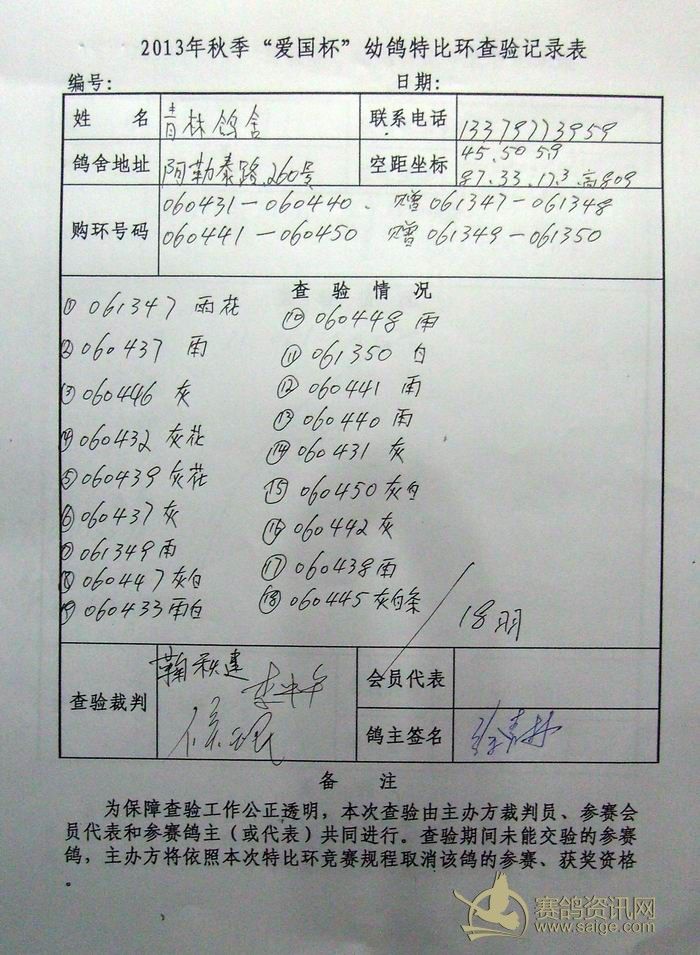 2013年秋季“爱国杯”幼鸽特比环查验记录表
编号: 日期:
姓 名 青林鸽舍 联系电话 13379773959
鸽舍地址 阿勒泰路260号 空距坐标 45.50 59
87.33.17.3.高809
购环号码 060431-060440、赠061347-061348
060441-060450 赠061349-061350
查 验 情 况
① 061347 雨花
② 060437 雨
③ 060446 灰
④ 060432 灰花
⑤ 060439 灰花
⑥ 060437 灰
⑦ 061349 雨
⑧ 060447 灰白
⑨ 060433 雨白
⑩ 060448 雨
⑪ 061350 白
⑫ 060441 雨
⑬ 060440 雨
⑭ 060431 灰
⑮ 060450 灰白
⑯ 060442 灰
⑰ 060438 雨
⑱ 060445 灰白条
18羽
查验裁判 会员代表
鸽主签名
备 注
为保障查验工作公正透明，本次查验由主办方裁判员、参赛会
员代表和参赛鸽主（或代表）共同进行。查验期间未能交验的参赛
鸽，主办方将依照本次特比环竞赛规程取消该鸽的参赛、获奖资格
。
赛鸽资讯网
www.saige.com